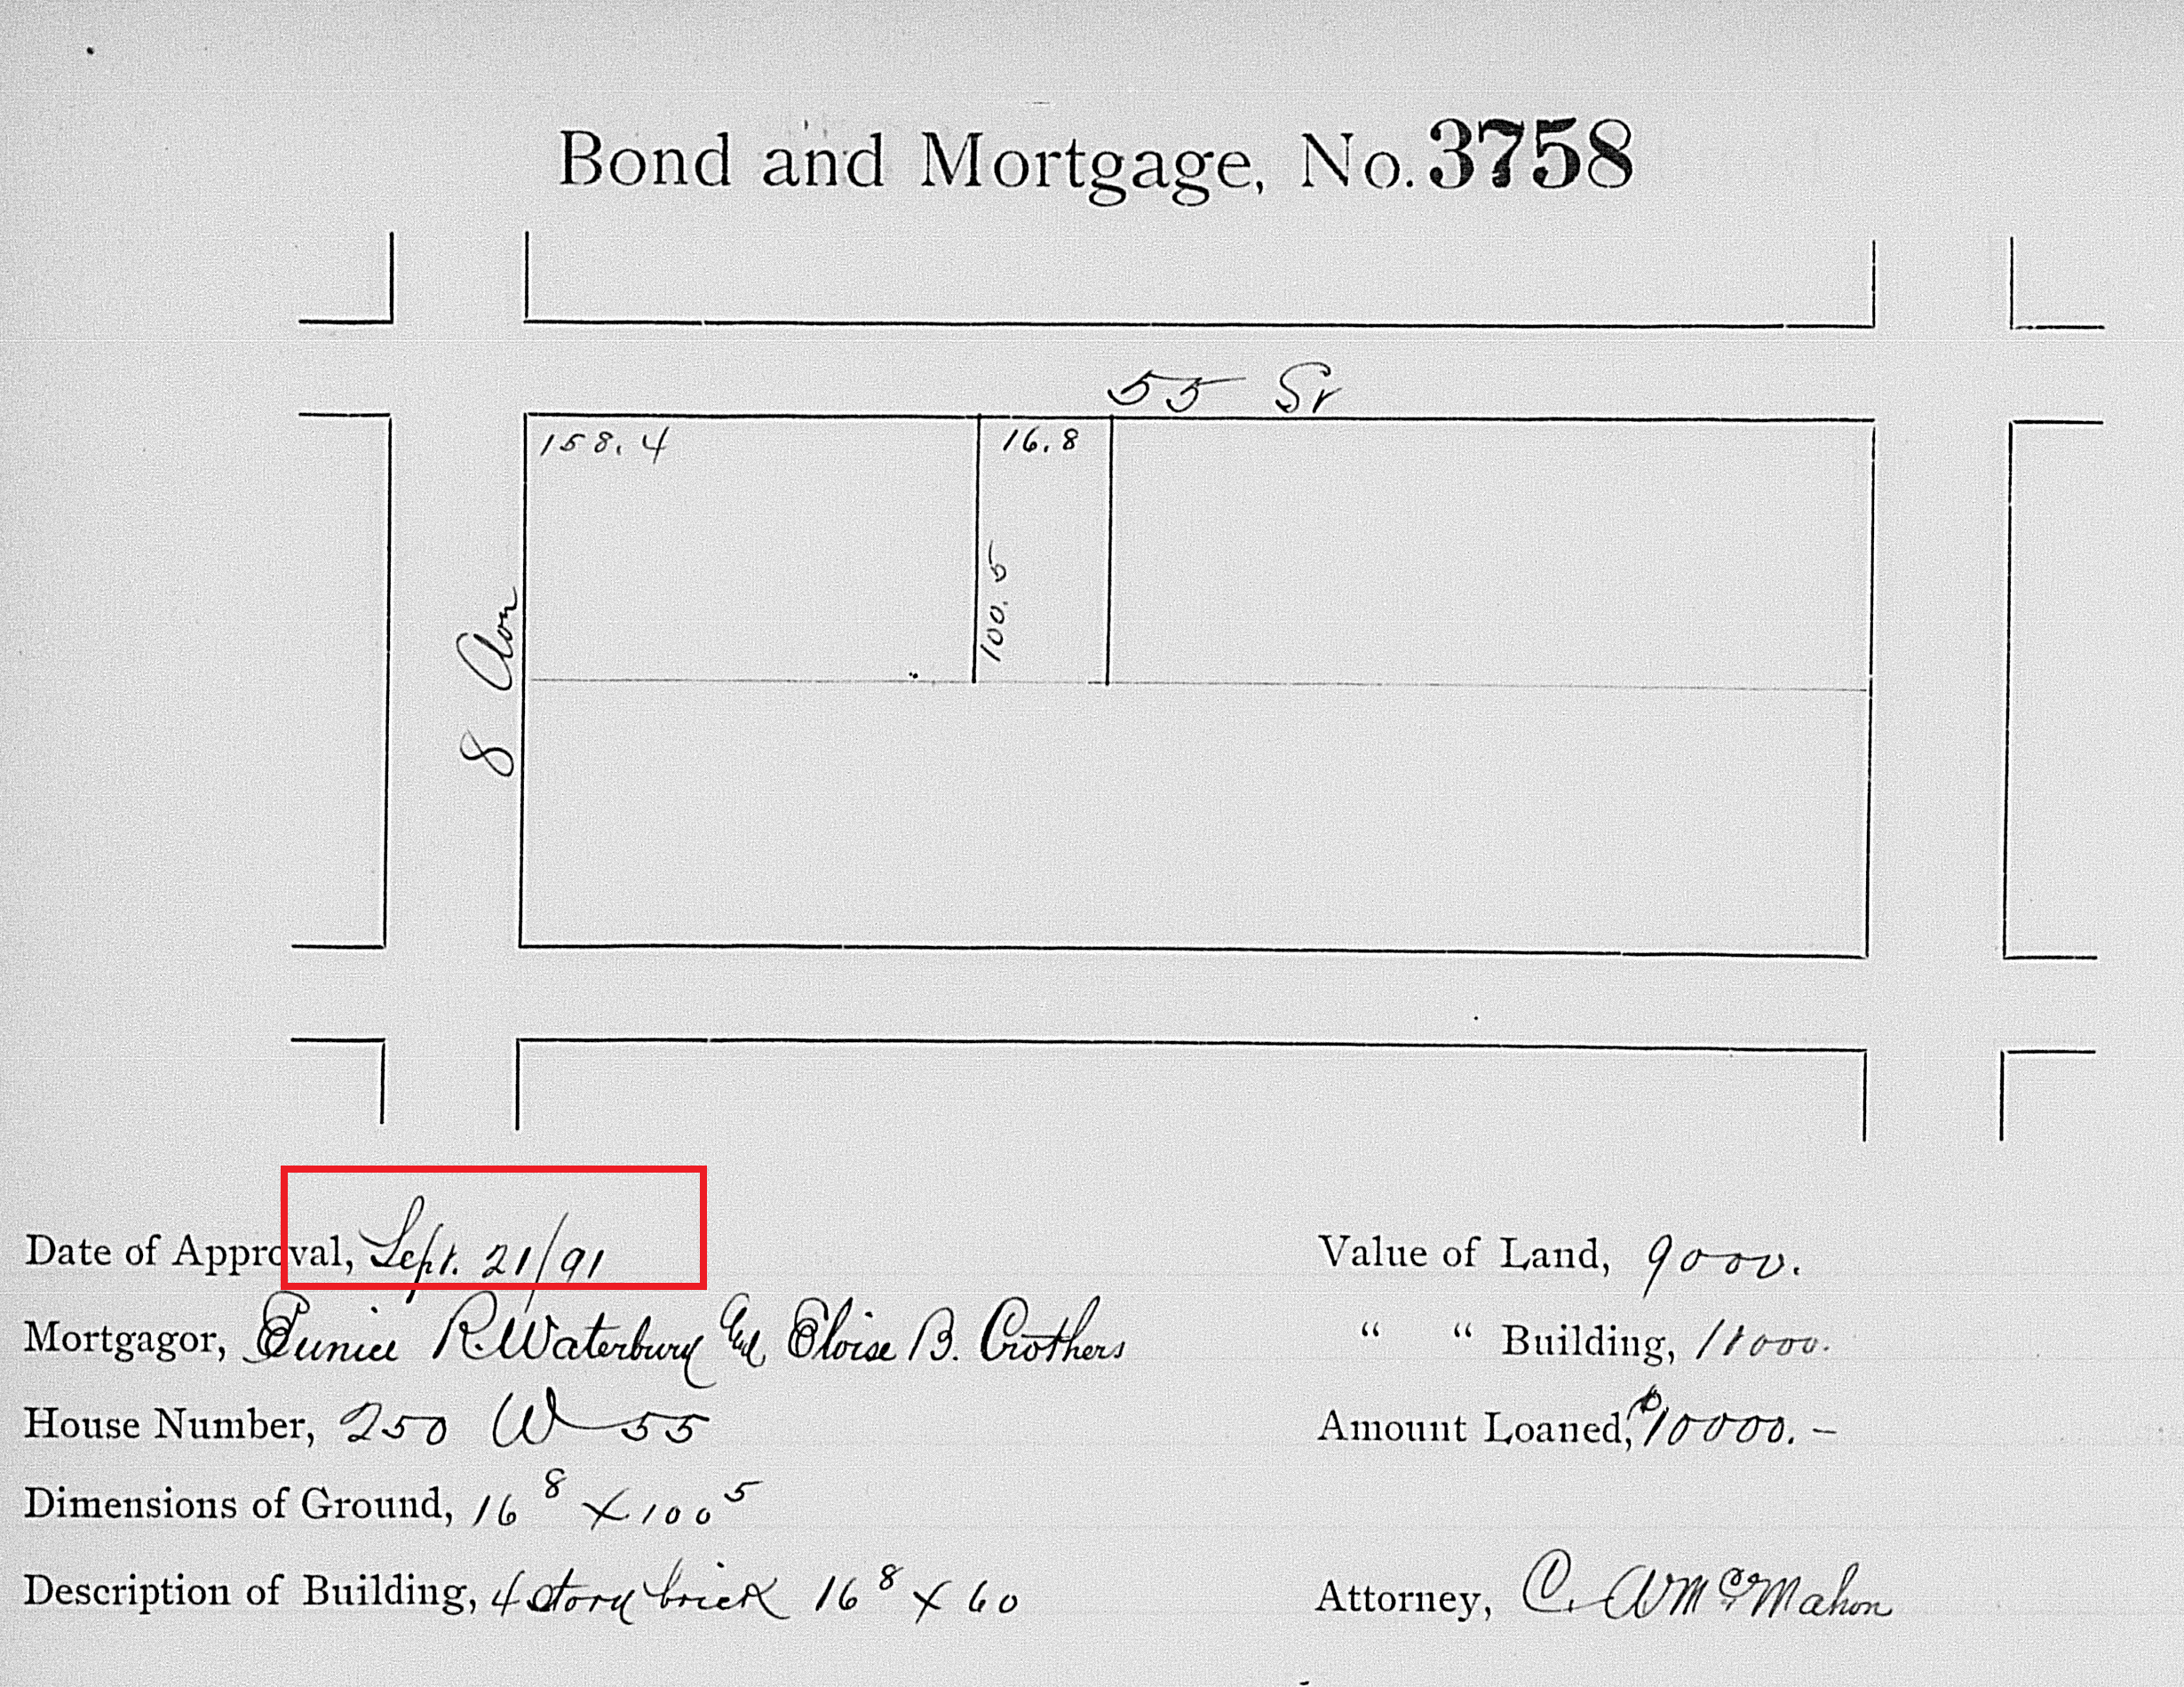 Bond and Mortgage, No. 3758
55 St
158.4
16.8
100.5
8 Ave
Date of Approval, Sept. 21/91
Mortgagor, Eunice R. Waterbury and Eloise B. Crothers
House Number, 250 W 55
Dimensions of Ground, 16 8 x 100 5
Description of Building, 4 story brick 16 8 x 60
Value of Land, 9000.
" " Building, 11000.
Amount Loaned, $10000. –
Attorney, C. McMahon